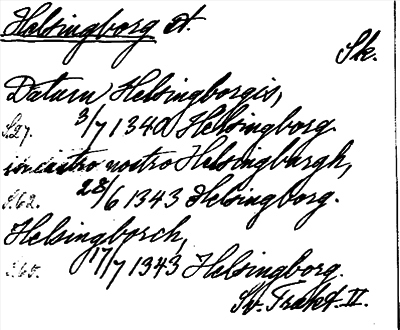 Helsingborg st.
Sk.
Datum Helsingborgis,
S.27. 3/7 1340 Helsingborg.
in castro nostro Helsingburgh,
S.62. 28/6 1343 Helsingborg.
Helsingborch,
S.65. 17/7 1343 Helsingborg.
Sv. Trakt. II.